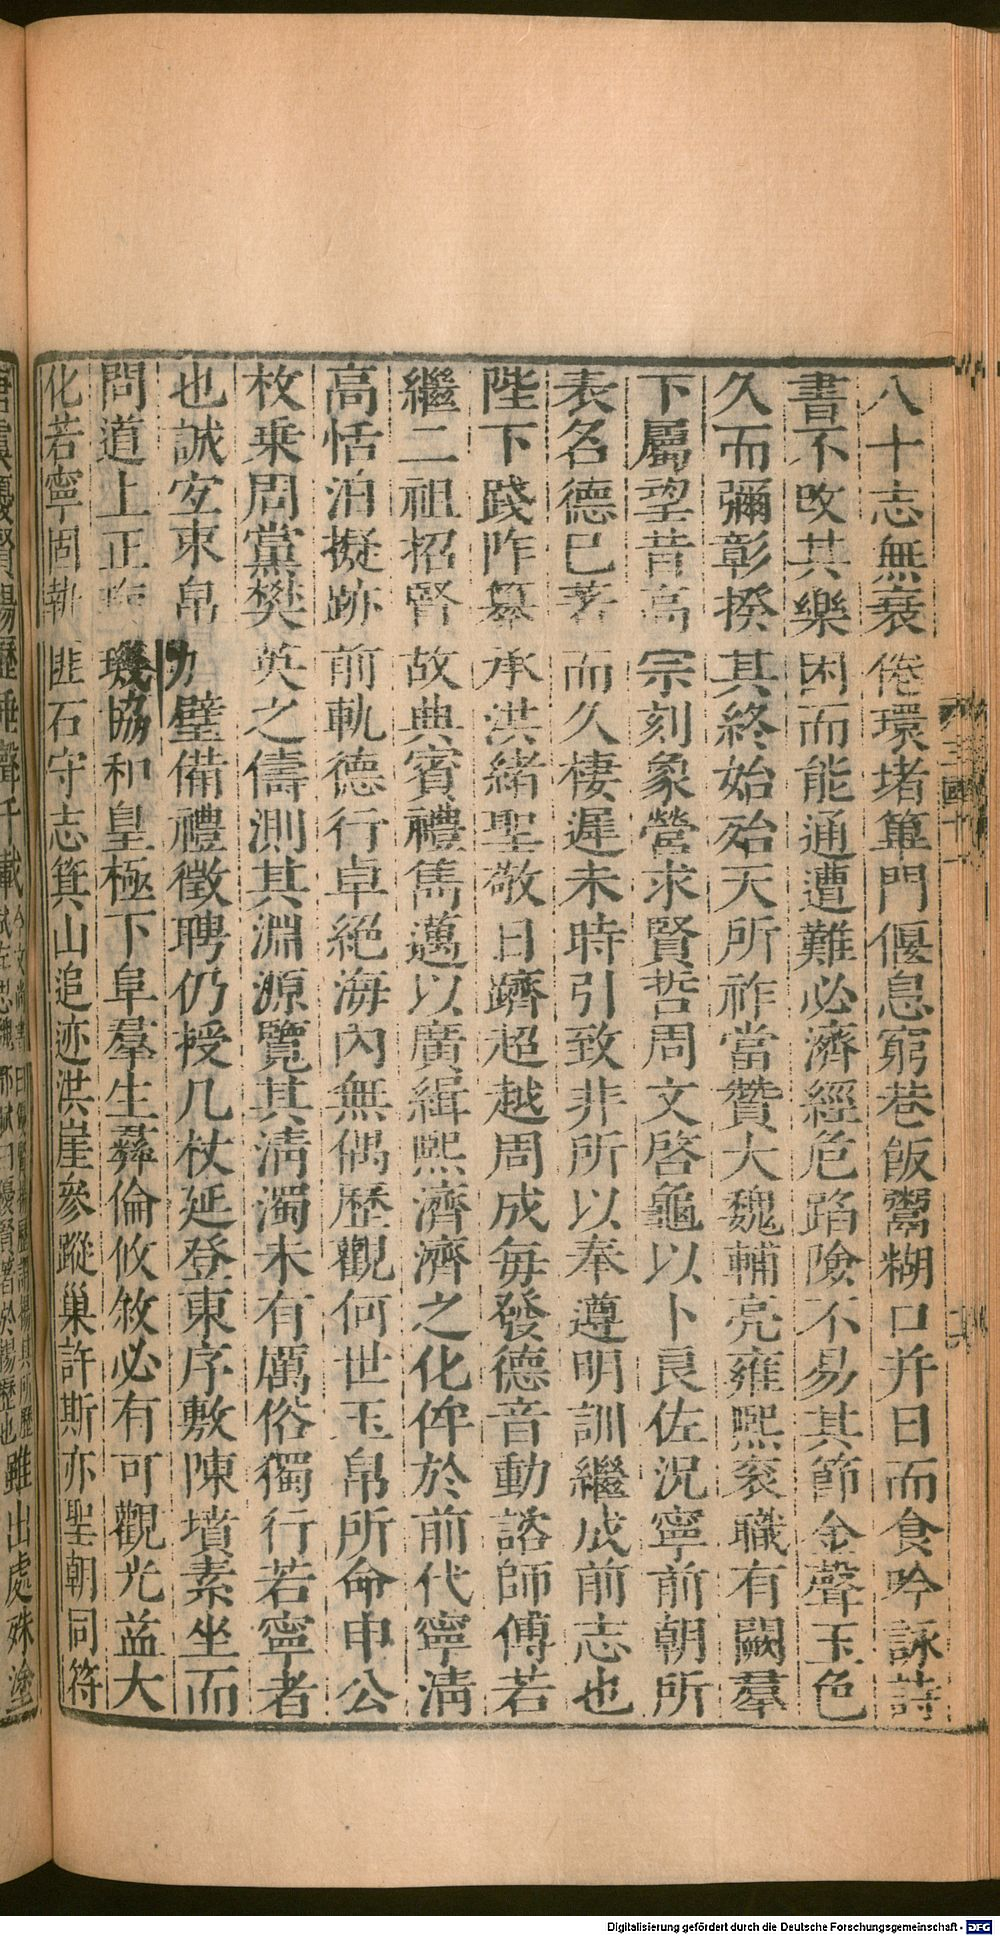 八十志無衰倦環堵篳門偃息窮巷飯鬻糊口并日而食吟詠詩
書不改其樂困而能通遭難必濟經危蹈險不易其節金聲玉色
久而彌彰揆其終始殆天所祚當贊大魏輔亮雍熙袞職有闕羣
下屬望昔高宗刻象營求賢哲周文啓龜以卜良佐況寧前朝所
表名德已著而久棲遲未時引致非所以奉遵明訓繼成前志也
陛下踐阼纂承洪緒聖敬日躋超越周成每發德音動諮師傅若
繼二祖招賢故典賓禮雋邁以廣緝熙濟濟之化侔於前代寧清
高恬泊擬跡前軌德行卓絕海內無偶歷觀何世玉帛所命申公
枚乗周黨樊英之儔測其淵源覽其清濁未有厲俗獨行若寧者
也誠宜束帛加璧備禮徵聘仍授几杖延登東序敷陳墳素坐而
問道上正璇璣協和皇極下阜羣生彝倫攸敘必有可觀光益大
化若寧固執匪石守志箕山追迹洪崖參蹤巢許斯亦聖朝同符
唐虞優賢揚歷垂聲千載雖出處殊塗
三國十一
Digitalisierung gefördert durch die Deutsche Forschungsgemeinschaft - DFG